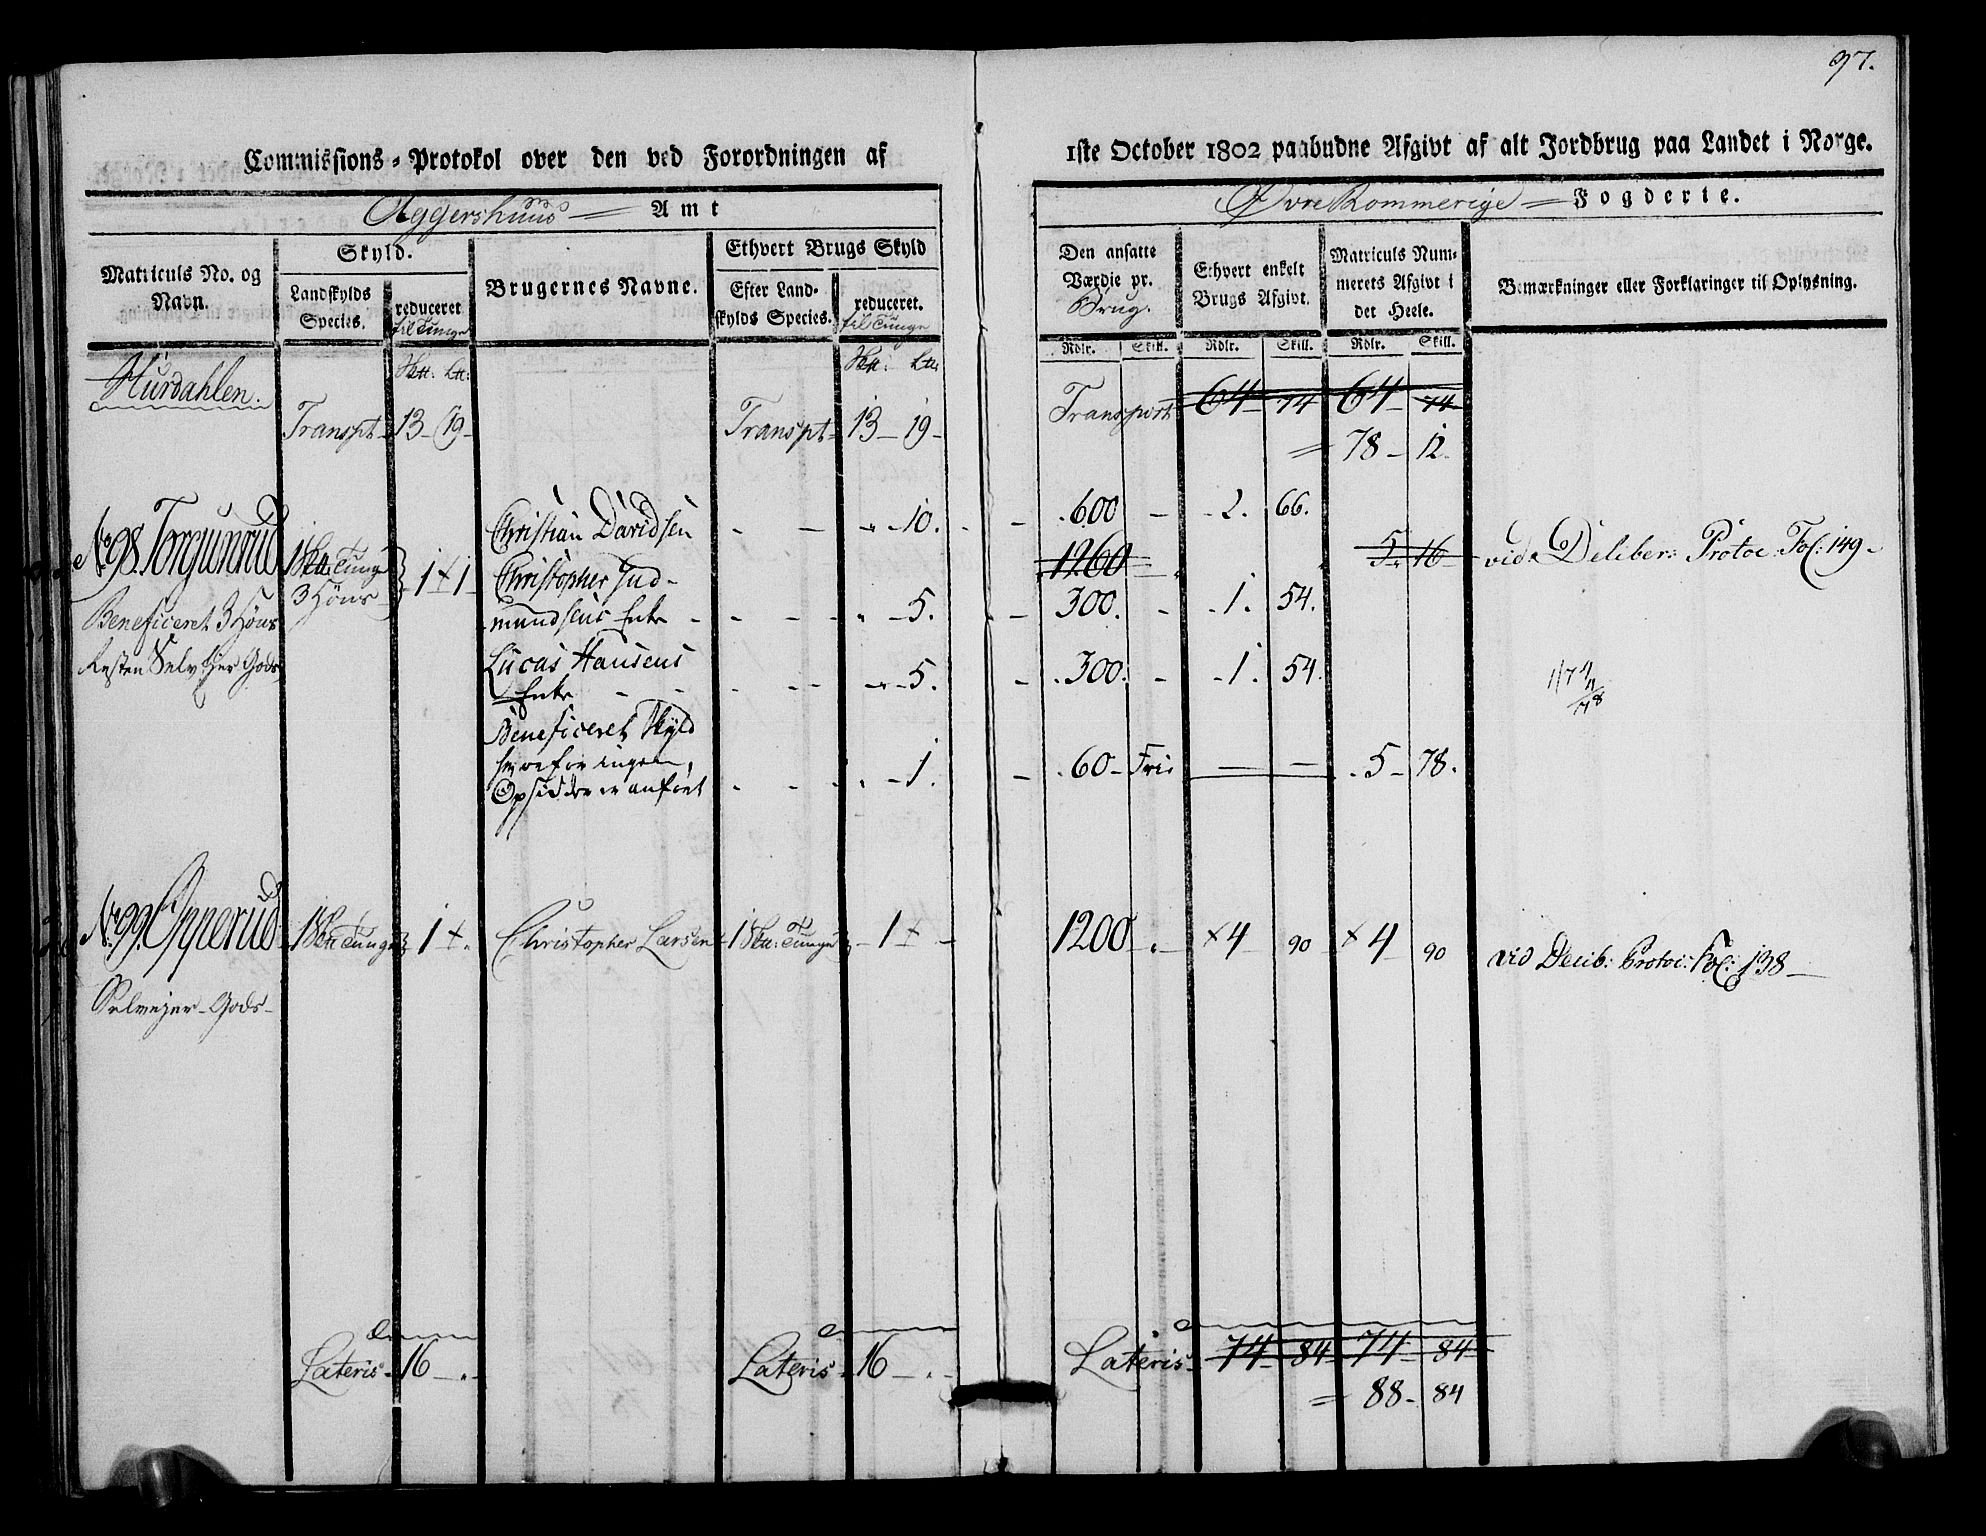 97.
Commissions-Protokol over den ved Forordningen af 1ste October 1802 paabudne Afgivt af alt Jordbrug paa Landet i Norge.
Aggershuus Amt
Øvre Rommerige Fogderie.
Matriculs No. og Navn.
Skyld.
Landskylds Species.
reduceret til Tunge
Brugernes Navne.
Ethvert Brugs Skyld
Efter Landskylds Species.
reduceret. til Tunge
Den ansatte Værdie pr. Brug.
Ethvert enkelt Brugs Afgivt.
Matriculs Nummerets Afgivt i det Heele.
Bemærkninger eller Forklaringer til Oplysning.
Rdlr. Skill. Rdlr. Skill. Rdlr. Skill.
Hurdahlen.
Transpt 13 - 19 - Transpt - 13 - 19 - Transport 64 - 74 64 - 74
= 78 - 12.
No 98. Torgunrud 1 Tunge 3 Høns 1 + 1 Christian Davidsen - 10. 600 - 2. 66.
1260 5 - 16 vide Deliber: Protoc Fol: 149 -
Beneficeret 3 Høns
Resten Selv Ejer Gods
Christopher Gudmundsens Enke - 5. 300. - 1. 54.
Lucas Hansens Enke - 5. 300. - 1. 54.
Beneficeret Skyld
hvorfor ingen
Opsidder er anført - 1. 60 - Frie - 5 - 78.
No 99. Opperud 1 Tunge 1 + . Christopher Larsen 1 Tunge - 1 + - 1200 - . × 4 90 × 4 90 vid Delib: Protoc: Fol: 138 -
Selvejer - Gods -
Lateris - 16 - . - Lateris - 16 - . - Lateris - 74 - 84 - 74 - 84
= 88 - 84